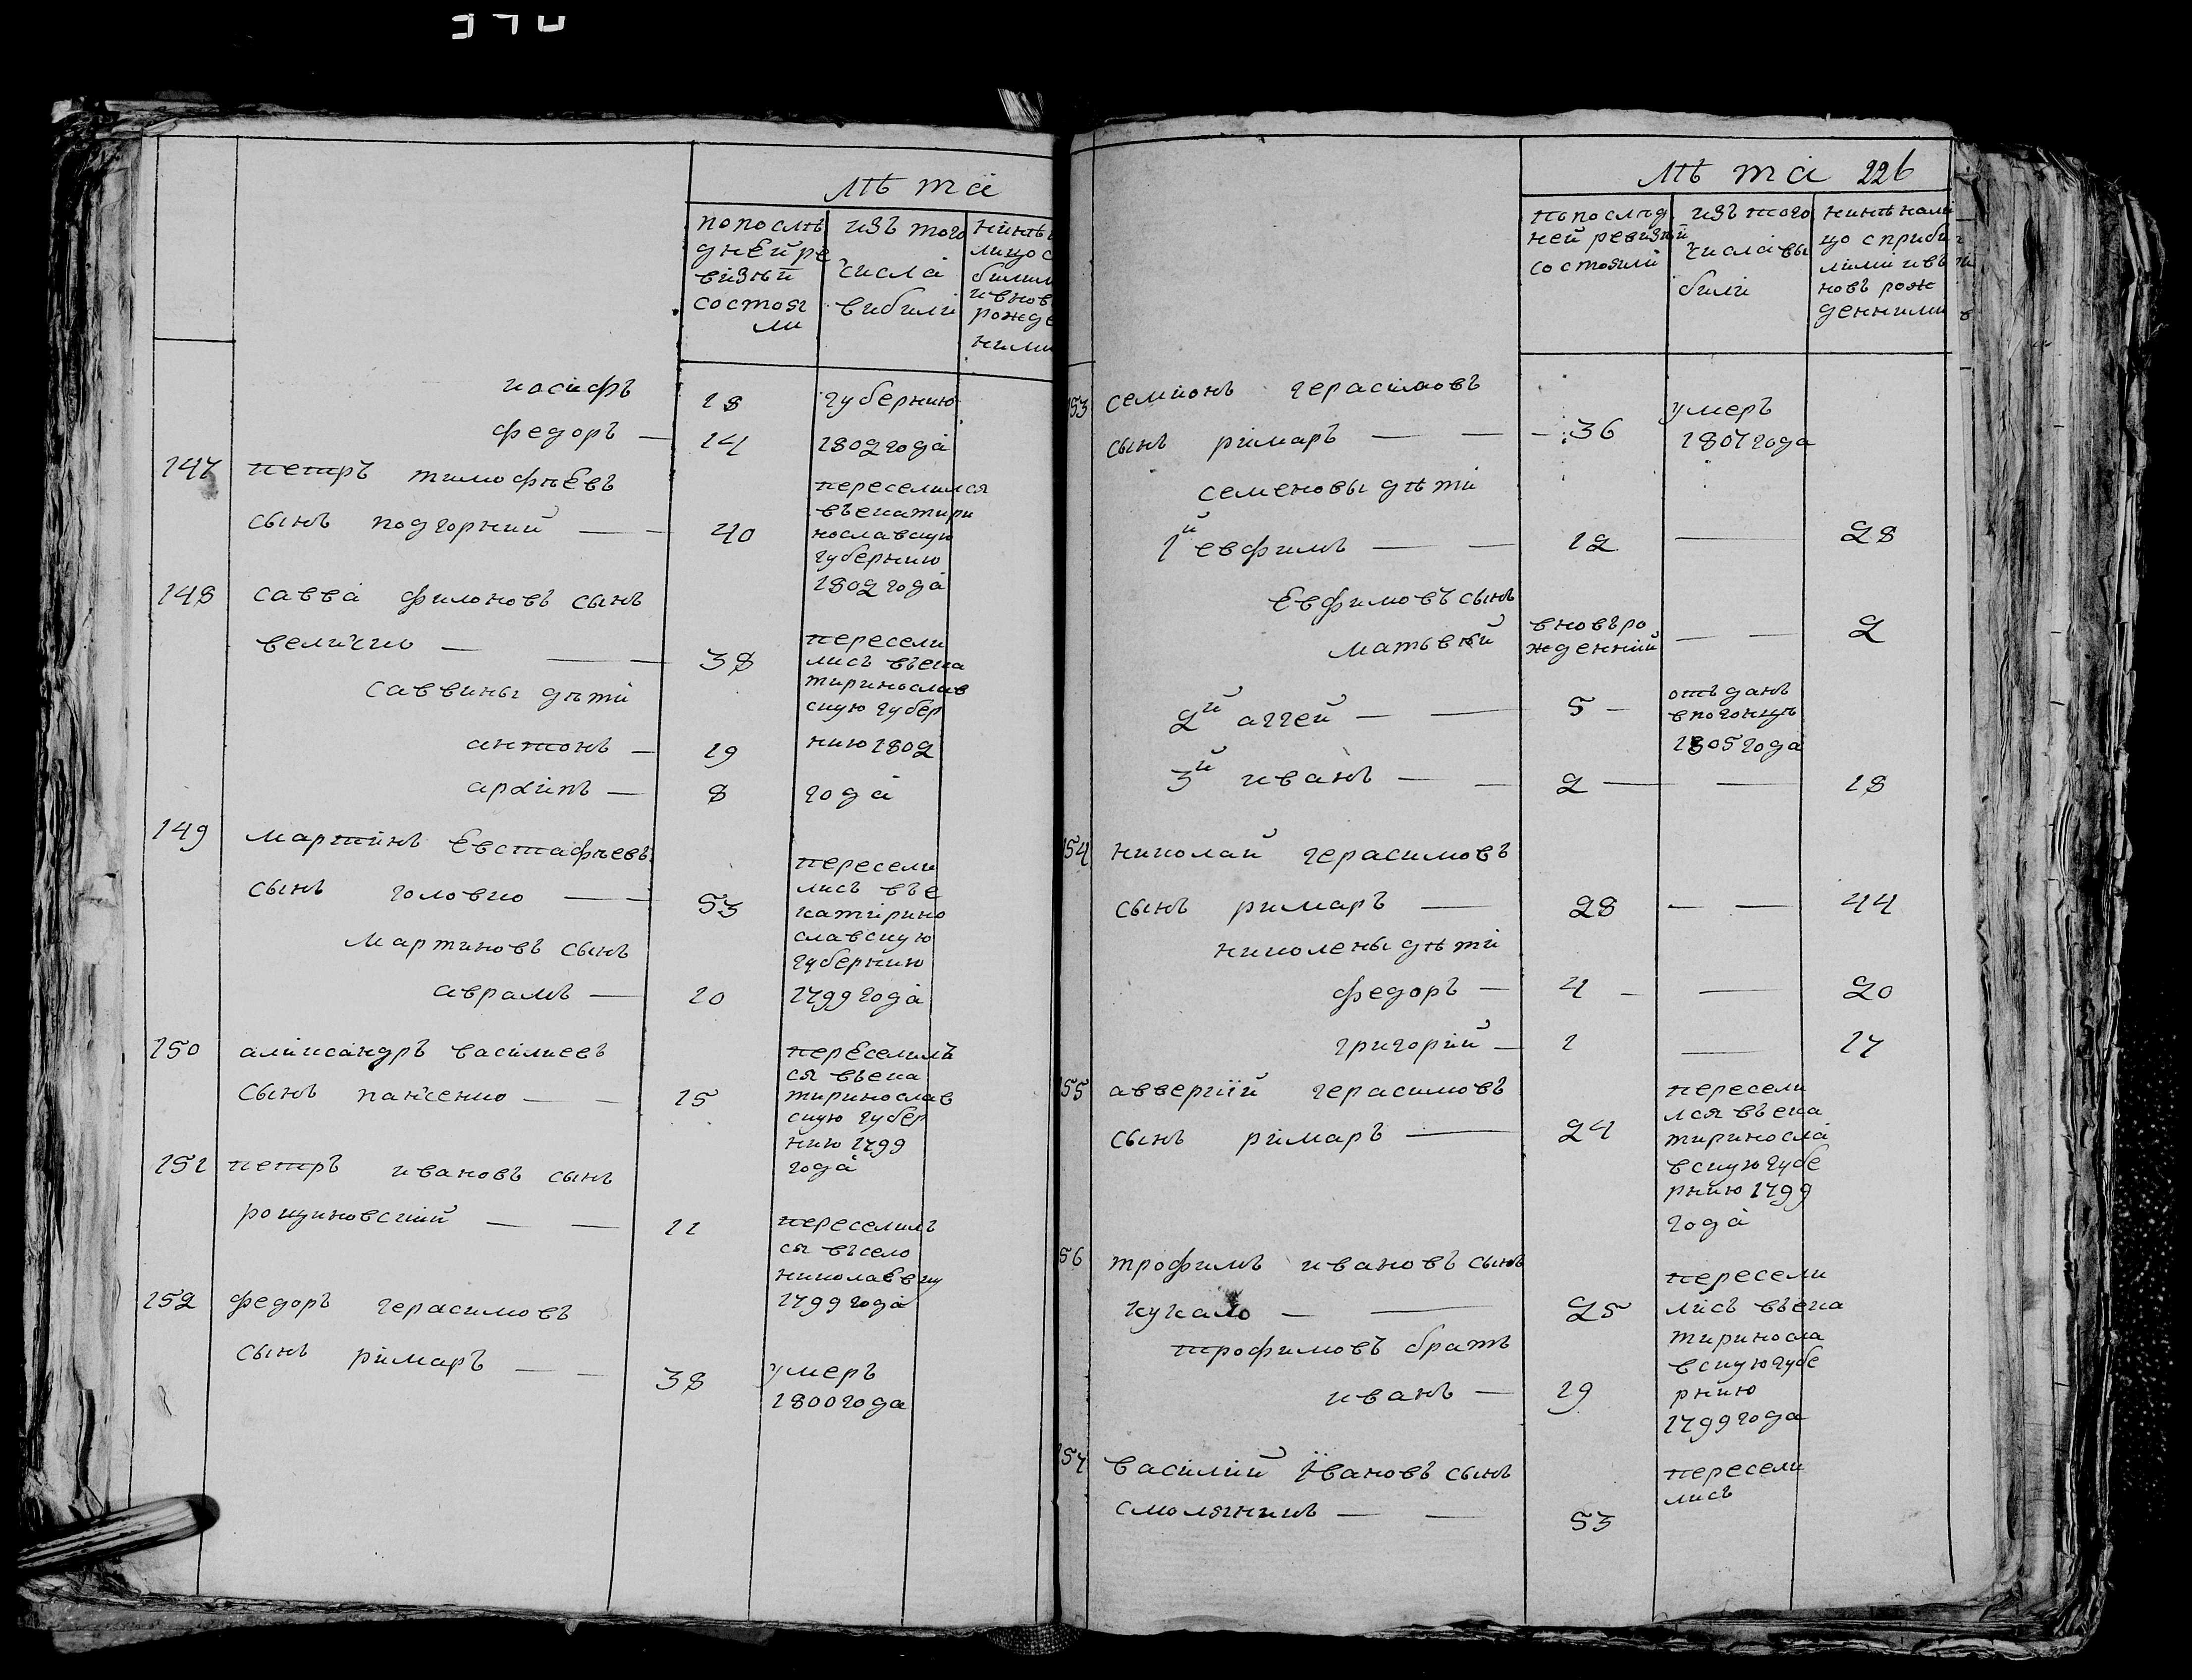 лѣта
попослѣ
днѣй ре
визѣй
состоя
ли
изъ того
числа
вибили
нинѣ
лицо с
билим
ивнов
рожде
ними
иосифъ 18 губернию
федоръ — 14 1802 года
147 петръ тимофѣевъ
сынъ подгорний — — 40
переселился
въекатири
нославскую
губернию
1802 года
148 савва филоновъ сынъ
величко — — — 38
саввины дѣти
антонъ — 19
архипъ — 8
пересели
лись въека
тиринослав
скую губер
нию 1802
года
149 мартинъ Евстафѣевъ
сынъ головко — — 53
мартиновъ сынъ
аврамъ — 10
пересели
лись въе
катирино
славскую
губернию
1799 года
150 аликсандръ василиевъ
сынъ панченко — — 15
переселил
ся въека
тиринослав
скую губер
нию 1799
года
151 петръ ивановъ сынъ
рощиновский — — 11
переселил
ся въсело
николаевку
1799 года
152 федоръ герасимовъ
сынъ римаръ — — 38
умеръ
1800 года
лѣта 226
попослѣд
ней ревизѣй
состояли
изъ того
числа вы
били
нинѣ нали
цо с приби
лими ивъ
новъ рож
денними
153 семионъ герасимовъ
сынъ римаръ — — — 36
умеръ
1807 года
семеновы дѣти
1й евфимъ — — 12 — 28
Евфимовъ сынъ
матьвѣй
вновъ ро
жденний — — 2
2й аггей — — 5 —
отъданъ
впогонцѣ
1805 года
3й иванъ — — 2 — — 18
154 николай герасимовъ
сынъ римаръ — 28 — — 44
николены дѣти
федоръ — 4 — — 20
григорий — 1 — 17
155 аввергіий герасимовъ
сынъ римаръ — 24
пересели
лся въека
тиринослa
вскую губе
рнию 1799
года
156 трофимъ ивановъ сынъ
кукало — — 25
трофимовъ братъ
иванъ — 19
пересели
лись въека
тиринослa
вскую губе
рнию
1799 года
157 василий Ивановъ сынъ
смолянинъ — — 53
пересели
лись